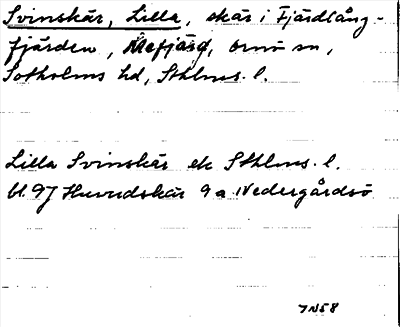 Svinskär, Lilla, skär i Fjärdlång-
fjärden, Mefjärd, Ornö sn,
Sotholms hd, Sthlms. l.
Lilla Svinskär ek Sthlms. l.
bl. 97 Huvudskär 9 a Nedergårdsö
7N58